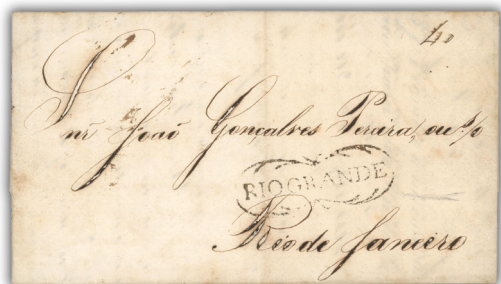 40
Snr João Gonçalves Pereira, ou s/o
RIO GRANDE
Rio de Janeiro